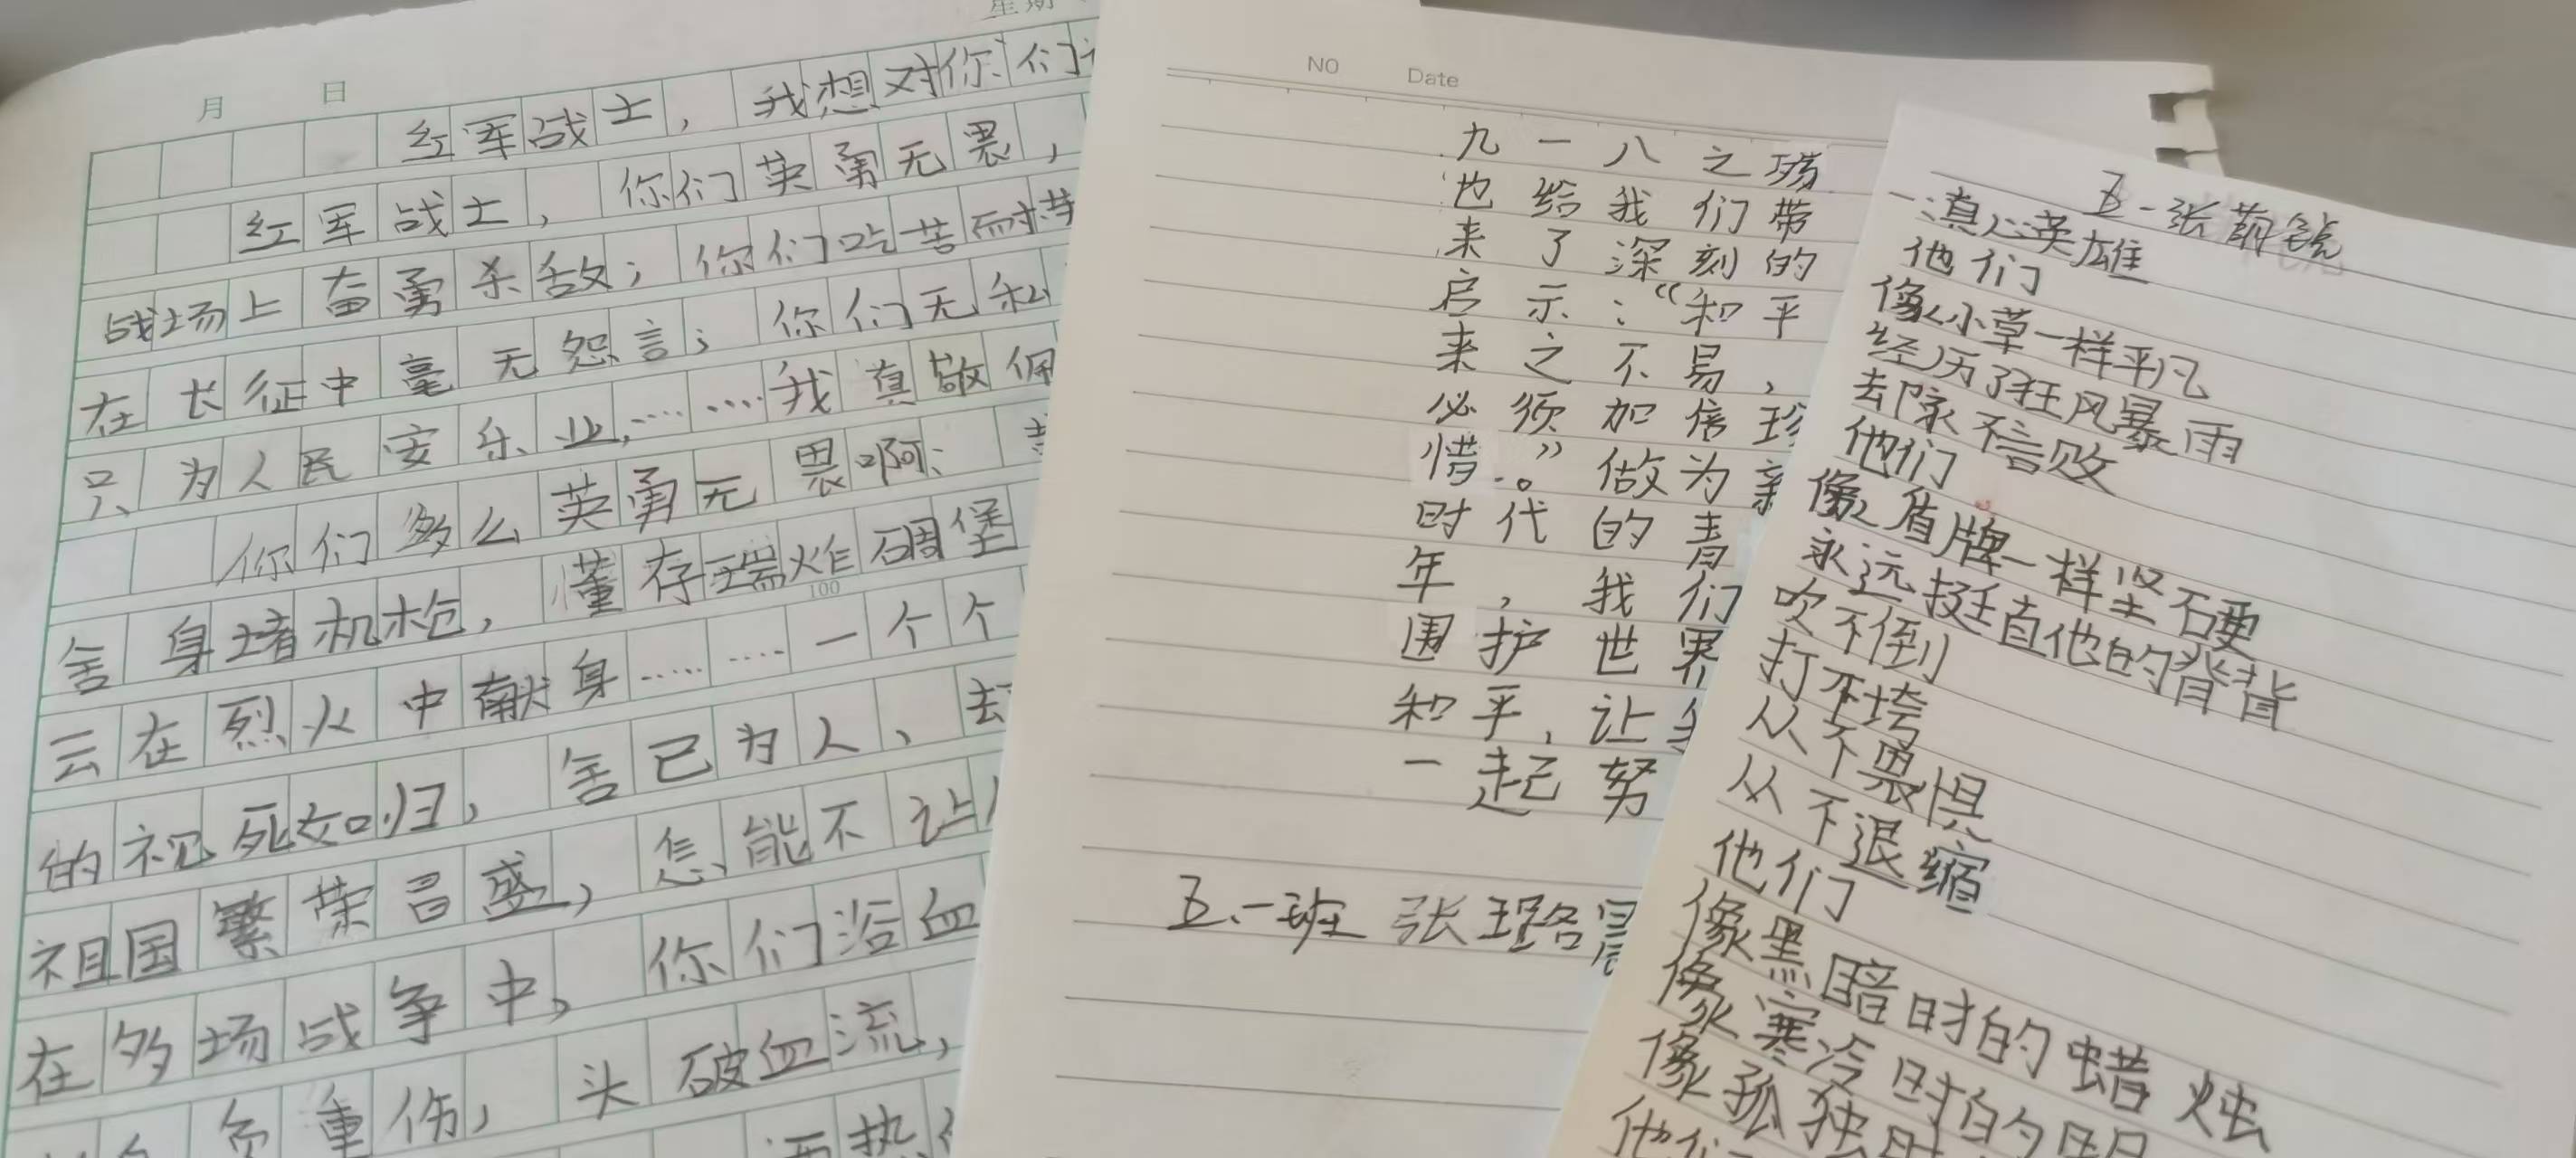 星期
月 日
红军战士，我想对你们
红军战士，你们英勇无畏，
战场上奋勇杀敌；你们吃苦耐劳
在长征中毫无怨言；你们无私
只为人民安乐业，……我真敬佩
你们多么英勇无畏啊、
舍身堵机枪，懂存瑞炸碉堡
100
云在烈火中献身……一个个
的视死如归，舍己为人、
祖国繁荣昌盛，怎能不让
在多场战争中，你们浴血
负重伤，头破血流，
NO Date
九一八之殇
也给我们带
来了深刻的
启示：“和平
来之不易，
必须加倍珍
惜。”做为新
时代的青
年，我们
围护世界
和平，让
一起努
五、一班 张璐
五一张萌
真心英雄
他们
像小草一样平凡
经历了狂风暴雨
却永不言败
他们
像盾牌一样坚硬
永远挺直他的背脊
吹不倒
打不垮
从不畏惧
从不退缩
他们
像黑暗时的蜡烛
像寒冷时的
像孤独时
他们